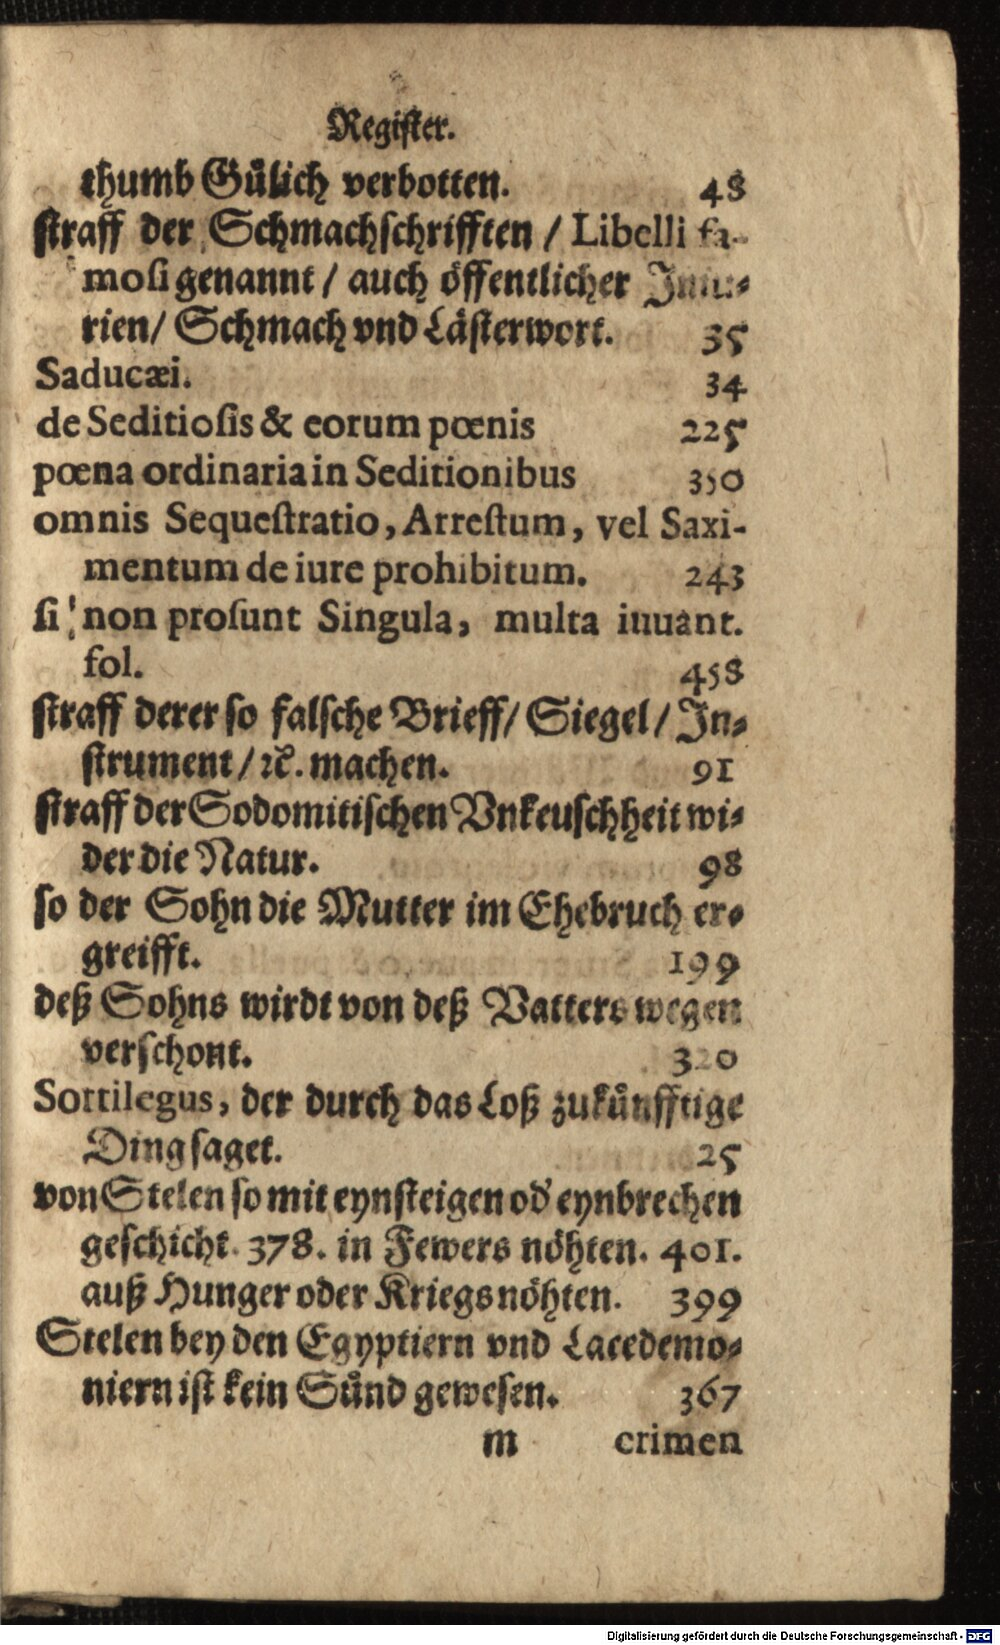 Register.
thumb Gůlich verbotten. 48
straff der Schmachschrifften / Libelli fa-
mosi genannt / auch öffentlicher Iniu-
rien / Schmach vnd Lästerwort. 35
Saducæi. 34
de Seditiosis & eorum pœnis 225
pœna ordinaria in Seditionibus 350
omnis Sequestratio, Arrestum, vel Saxi-
mentum de iure prohibitum. 243
si non prosunt Singula, multa iuuant.
fol. 458
straff derer so falsche Brieff / Siegel / In-
strument / ꝛc. machen. 91
straff der Sodomitischen Vnkeuschheit wi-
der die Natur. 98
so der Sohn die Mutter im Ehebruch er-
greifft. 199
deß Sohns wirdt von deß Vatters wegen
verschont. 320
Sortilegus, der durch das Loß zukůnfftige
Ding saget. 25
von Stelen so mit eynsteigen od' eynbrechen
geschicht. 378. in Fewers nöhten. 401.
auß Hunger oder Kriegsnöhten. 399
Stelen bey den Egyptiern vnd Lacedemo-
niern ist kein Sůnd gewesen. 367
m crimen
Digitalisierung gefördert durch die Deutsche Forschungsgemeinschaft - DFG